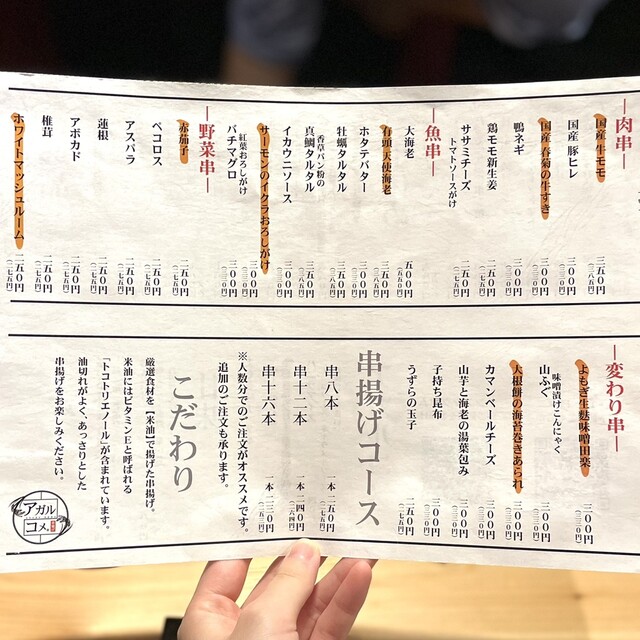 ―肉串―
国産 牛モモ 三五〇円(三八五円)
国産 豚ヒレ 三〇〇円(三三〇円)
国産 春菊の牛すき 三〇〇円(三三〇円)
鴨ネギ 三〇〇円(三三〇円)
鶏モモ新生姜 二五〇円(二七五円)
ササミチーズ
トマトソースがけ 二五〇円(二七五円)
―魚串―
大海老 五〇〇円(五五〇円)
有頭 天使海老 三五〇円(三八五円)
ホタテバター 三〇〇円(三三〇円)
牡蠣タルタル 三五〇円(三八五円)
香草パン粉の
真鯛タルタル 三五〇円(三八五円)
イカウニソース 三〇〇円(三三〇円)
サーモンのイクラおろしがけ 三〇〇円(三三〇円)
紅葉おろしがけ
バチマグロ 三〇〇円(三三〇円)
―野菜串―
赤茄子 二五〇円(二七五円)
ペコロス 二五〇円(二七五円)
アスパラ 二五〇円(二七五円)
蓮根 二五〇円(二七五円)
アボカド 二五〇円(二七五円)
椎茸 二五〇円(二七五円)
ホワイトマッシュルーム 二五〇円(二七五円)
―変わり串―
よもぎ生麩味噌田楽 三〇〇円(三三〇円)
味噌漬けこんにゃく
山ふぐ 三〇〇円(三三〇円)
大根餅の海苔巻きあられ 三〇〇円(三三〇円)
カマンベールチーズ 三〇〇円(三三〇円)
山芋と海老の湯葉包み 三〇〇円(三三〇円)
子持ち昆布 三〇〇円(三三〇円)
うずらの玉子 二五〇円(二七五円)
串揚げコース
串八本 一本 二五〇円(二七五円)
串十二本 一本 二四〇円(二六四円)
串十六本 一本 二三〇円(二五三円)
※人数分でのご注文がオススメです。
追加のご注文も承ります。
こだわり
厳選食材を【米油】で揚げた串揚げ。
米油にはビタミンEと呼ばれる
「トコトリエノール」が含まれています。
油切れがよく、あっさりとした
串揚げをお楽しみください。
アガル
コメ。